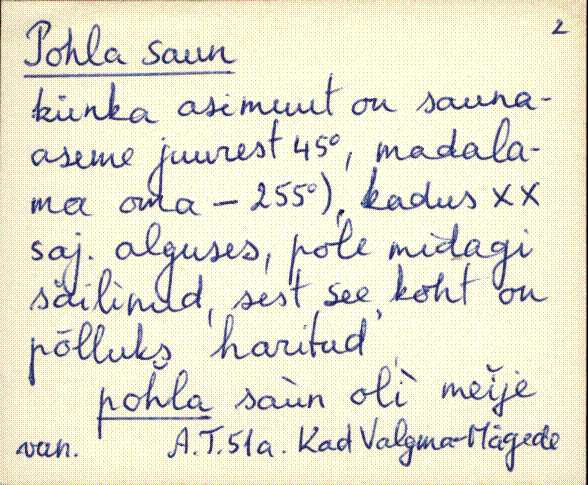 2
Pohla saun
künka asimuut on sauna-
aseme juurest 45°, madala-
ma oma – 255°), kadus XX
saj. alguses, pole midagi
säilinud, sest see koht on
põlluks haritud
pohla saùn olì meije
van. A.T. 51a. Kad Valgma-Mägede